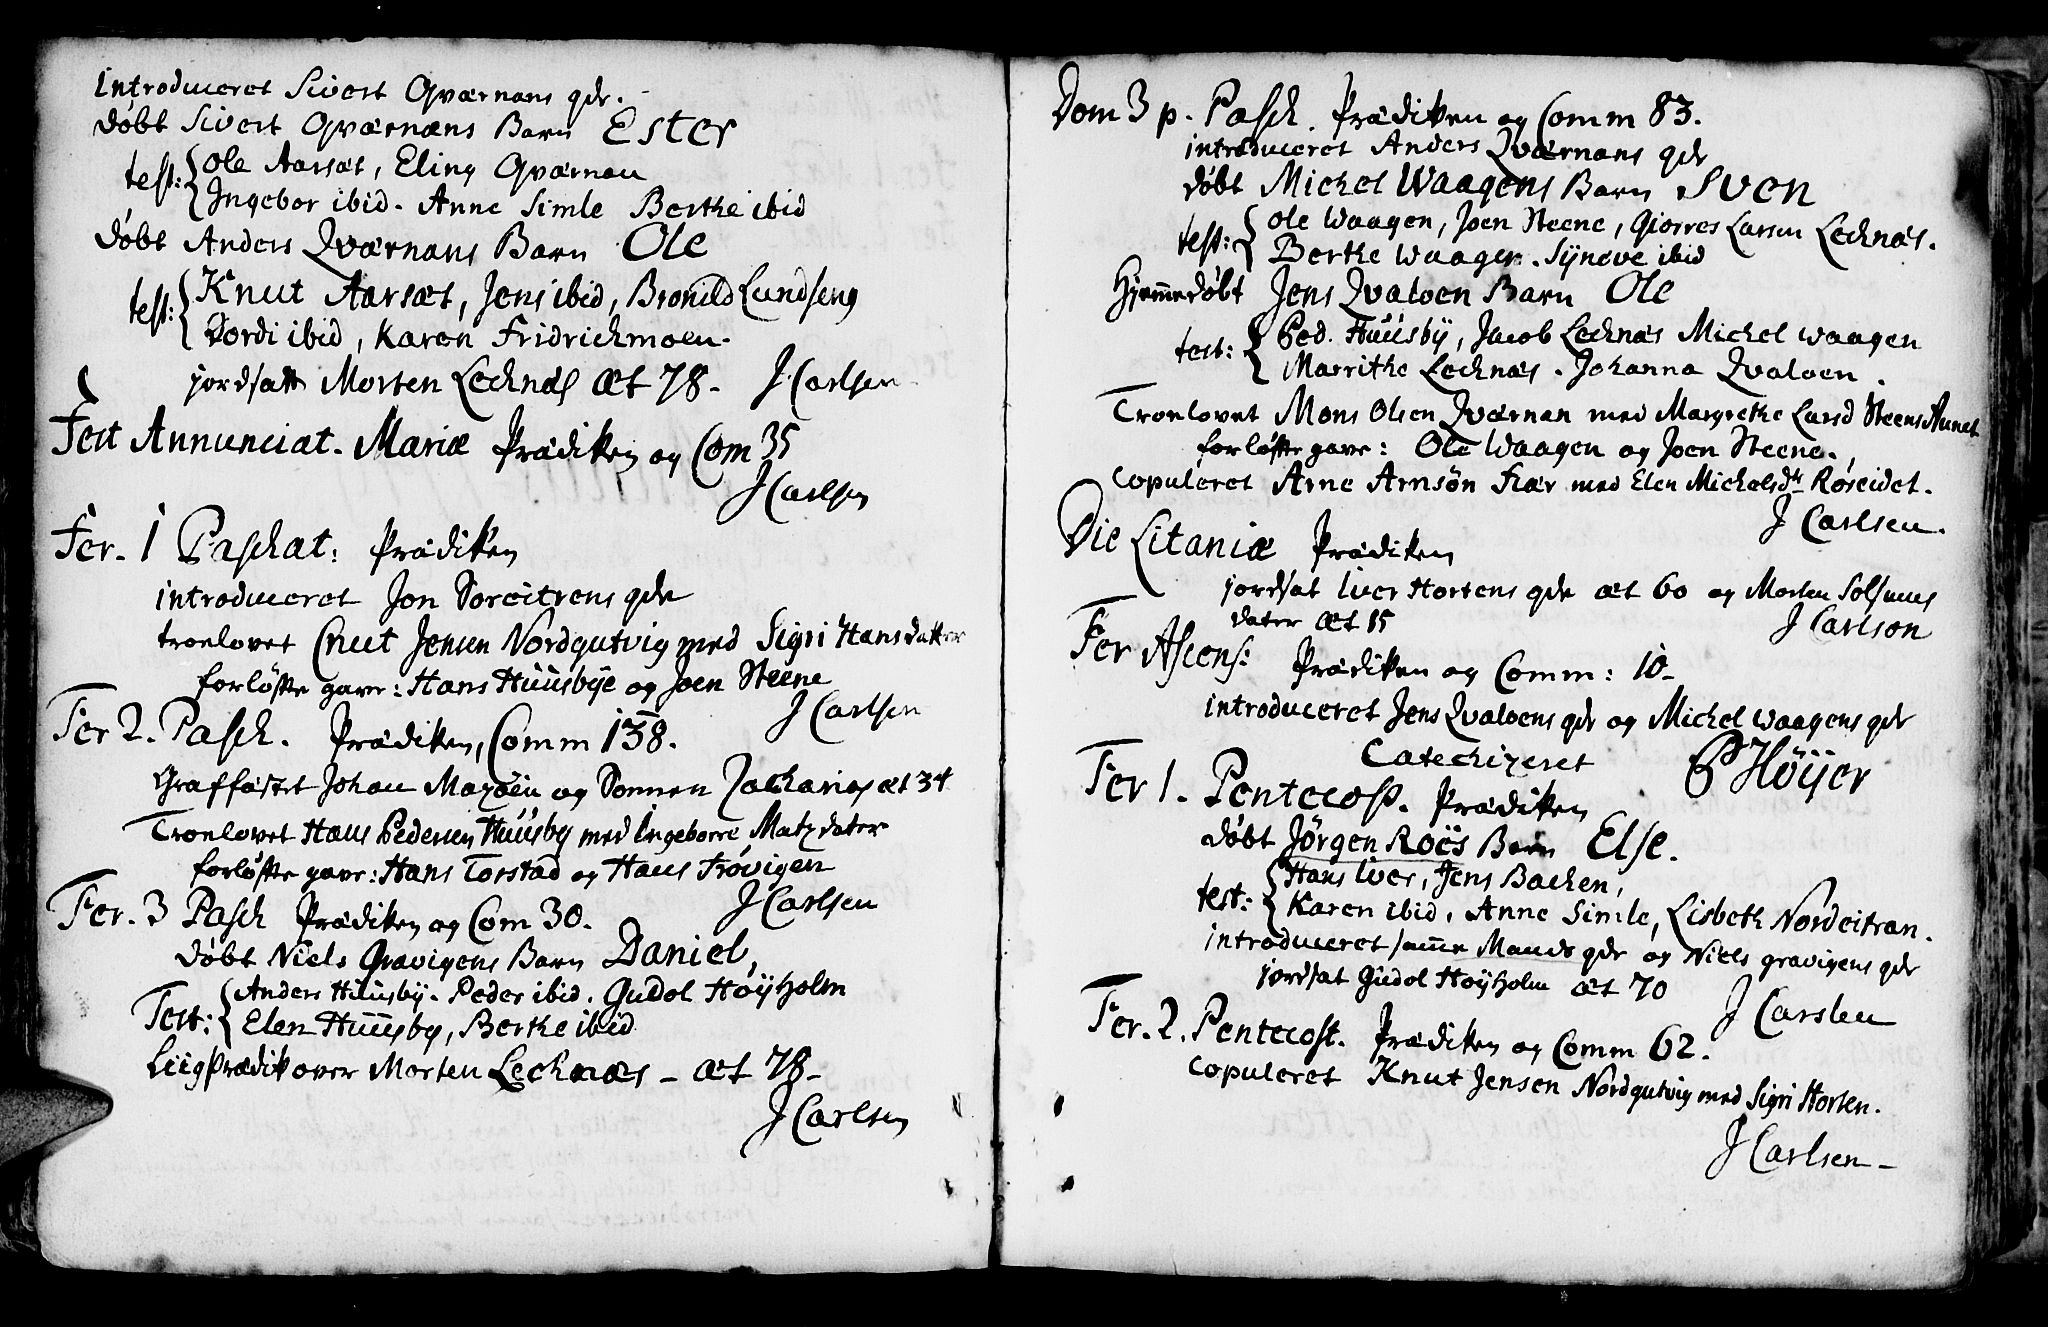 introduceret Sivert Qværnæns qde.
døbt Sivert Qværnæns Barn Ester
test: Ole Aarsæt, Eling Qværnæn
Ingebor ibid. Anne Simle Berthe ibid
døbt Anders Qværnæns Barn Ole
test: Knut Aarsæt, Jens ibid, Bronild Lundseng
Dordi ibid, Karen Fridrichmoen.
jordsatt Morten Lechnæs æt 78. J Carlsen
Fest Annunciat. Mariæ Prædiken og Com 35
J Carlsen
Fer. 1 Paschat: Prædiken
introduceret Jon Soreitrens qde
troelovet Cnut Jensen Nordgutvig med Sigri Hansdatter
forløfte gave: Hans Huusbye og Joen Steene
J Carlsen
Fer 2. Pasch. Prædiken, Comm 138.
Graffæstet Johan Mazøen og Sønnen Zacharias æt 34
Troelovet Hans Pedersen Huusby med Ingeborre Matzdater
forløfte gave: Hans Torstad og Hans Frøvigen
J Carlsen
Fer. 3 Pasch Prædiken og Com 30.
døbt Niels Gravigens Barn Daniel,
Test: Anders Huusby. Peder ibid. Gudol Høyholm
Elen Huusby, Berthe ibid
Liigprædik over Morten Lechnæs - æt 78-
J Carlsen
Dom 3 p. Pasch. Prædiken og Comm 83.
introduceret Anders Qværnæns qde
døbt Michel Waagens Barn Sven
test: Ole Waagen, Joen Steene, Giorres Larsen Lechnæs.
Berthe Waagen. Synove ibid
Hjemmedøbt Jens Qvaloen Barn Ole
test: Ped. Huusby, Jacob Lechnæs Michel Waagen
Marrithe Lechnæs. Johanna Qvaloen.
Troelovet Mons Olsen Qværnæn med Margrethe Larsd Steens Aunet
forløfte gave: Ole Waagen og Joen Steene.
Copuleret Arne Arnsøn Fiær med Elen Michelsdr Røreidet.
J Carlsen.
Die Litaniæ Prædiken
jordsat Iver Hortens qde æt 60 og Morten Solsems
dater æt 15
J Carlson
Fer Ascens: Prædiken og Comm: 10-
introduceret Jens Qvaloens qde og Michel Waagens qde
Catechizeret P Höyer
Fer 1. Pentecost. Prædiken
døbt Jørgen Roës Barn Else.
test: Hans Iver, Jens Bachen,
Karen ibid, Anne Simle, Lisbeth Nordeitran.
introduceret samme Mands qde og Niels gravigens qde
jordsat Gudol Høyholm æt 70
J Carslen
Fer. 2. Pentecost. Prædiken og Comm 62.
Copuleret Knut Jensen Nordgutvig med Sigri Horten.
J Carlsen-